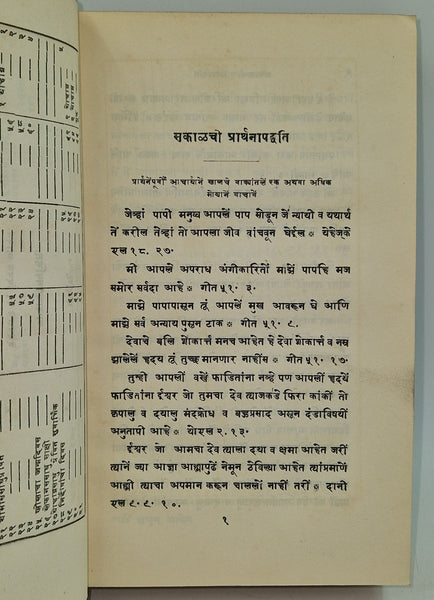 सकाळची प्रार्थनापद्धति
प्रार्थनेपूर्वी आचार्यानें खालचे वाक्यांतलें एक अथवा अधिक
मोठ्यानें वाचावें
जेव्हां पापी मनुष्य आपलें पाप सोडून जें न्यायी व यथार्थ
तें करील तेव्हां तो आपला जीव वांचवून घेईल ॰ येहेज्के
एल १८. २७.
मी आपले अपराध अंगीकारितों माझें पापहि मज
समोर सर्वदा आहे ॰ गीत ५१. ३.
माझे पापापासून तूं आपलें मुख आवरून घे आणि
माझे सर्व अन्याय पुसून टाक ॰ गीत ५१. ९.
देवाचे बलि शोकार्त्त मनच आहेत हे देवा शोकार्त्त व नम्र
झालेलें हृदय तूं तुच्छ मानणार नाहींस ॰ गीत ५१. १७.
तुम्ही आपलीं वस्त्रें फाडितांना नव्हे पण आपलीं हृदयें
फाडितांना ईश्वर जो तुमचा देव त्याजकडे फिरा कांकीं तो
कृपालु व दयालु मंदक्रोध व बहुप्रसाद असून दंडाविषयीं
अनुतापी आहे ॰ योएल २. १३.
ईश्वर जो आमचा देव त्याला दया व क्षमा आहेत जरी
त्यानें ज्या आज्ञा आह्मापुढें नेमून ठेविल्या आहेत त्यांप्रमाणें
आह्मी त्याचा अपमान करून चाललों नाहीं तरी ॰ दानी
एल ९. ९. १०.
१